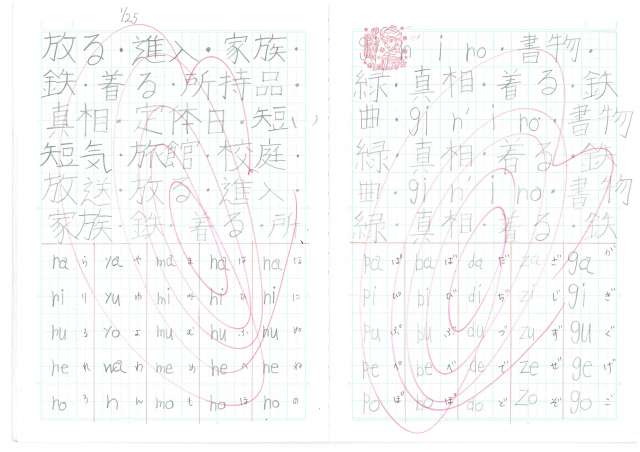 1/25
放る・進入・家族・
鉄・着る・所持品・
真相・定休日・短い
短気・旅館・校庭・
放送・放る・進入・
家族・鉄・着る・所
na ら ya や ma ま ha は na な
hi り yu ゆ mi み hi ひ ni に
hu る yo よ mu む hu ふ nu ぬ
he れ wa わ me め he へ ne ね
ho ろ n ん mo も ho ほ no の
n' i no・書物・
緑・真相・着る・鉄
曲・gi n' i no・書物
緑・真相・着る・鉄
曲・gi n' i no・書物
緑・真相・着る・鉄
pa ぱ ba ば da だ za ざ ga が
pi ぴ bi び di ぢ zi じ gi ぎ
pu ぷ bu ぶ du づ zu ず gu ぐ
pe ぺ be べ de で ze ぜ ge げ
po ぽ bo ぼ do ど zo ぞ go ご